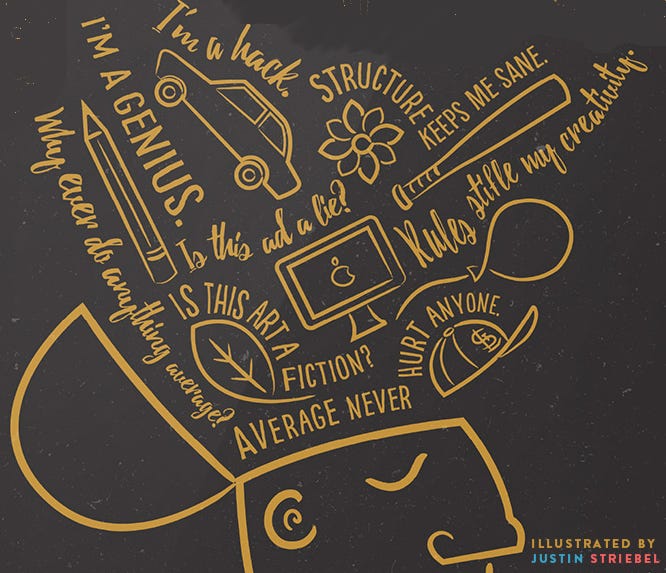 I'm a hack.
I'M A GENIUS.
STRUCTURE
KEEPS ME SANE.
Rules stifle my creativity.
Why ever do anything average?
Is this ad a lie?
IS THIS ART A
FICTION?
AVERAGE NEVER
HURT ANYONE.
STL
ILLUSTRATED BY
JUSTIN STRIEBEL